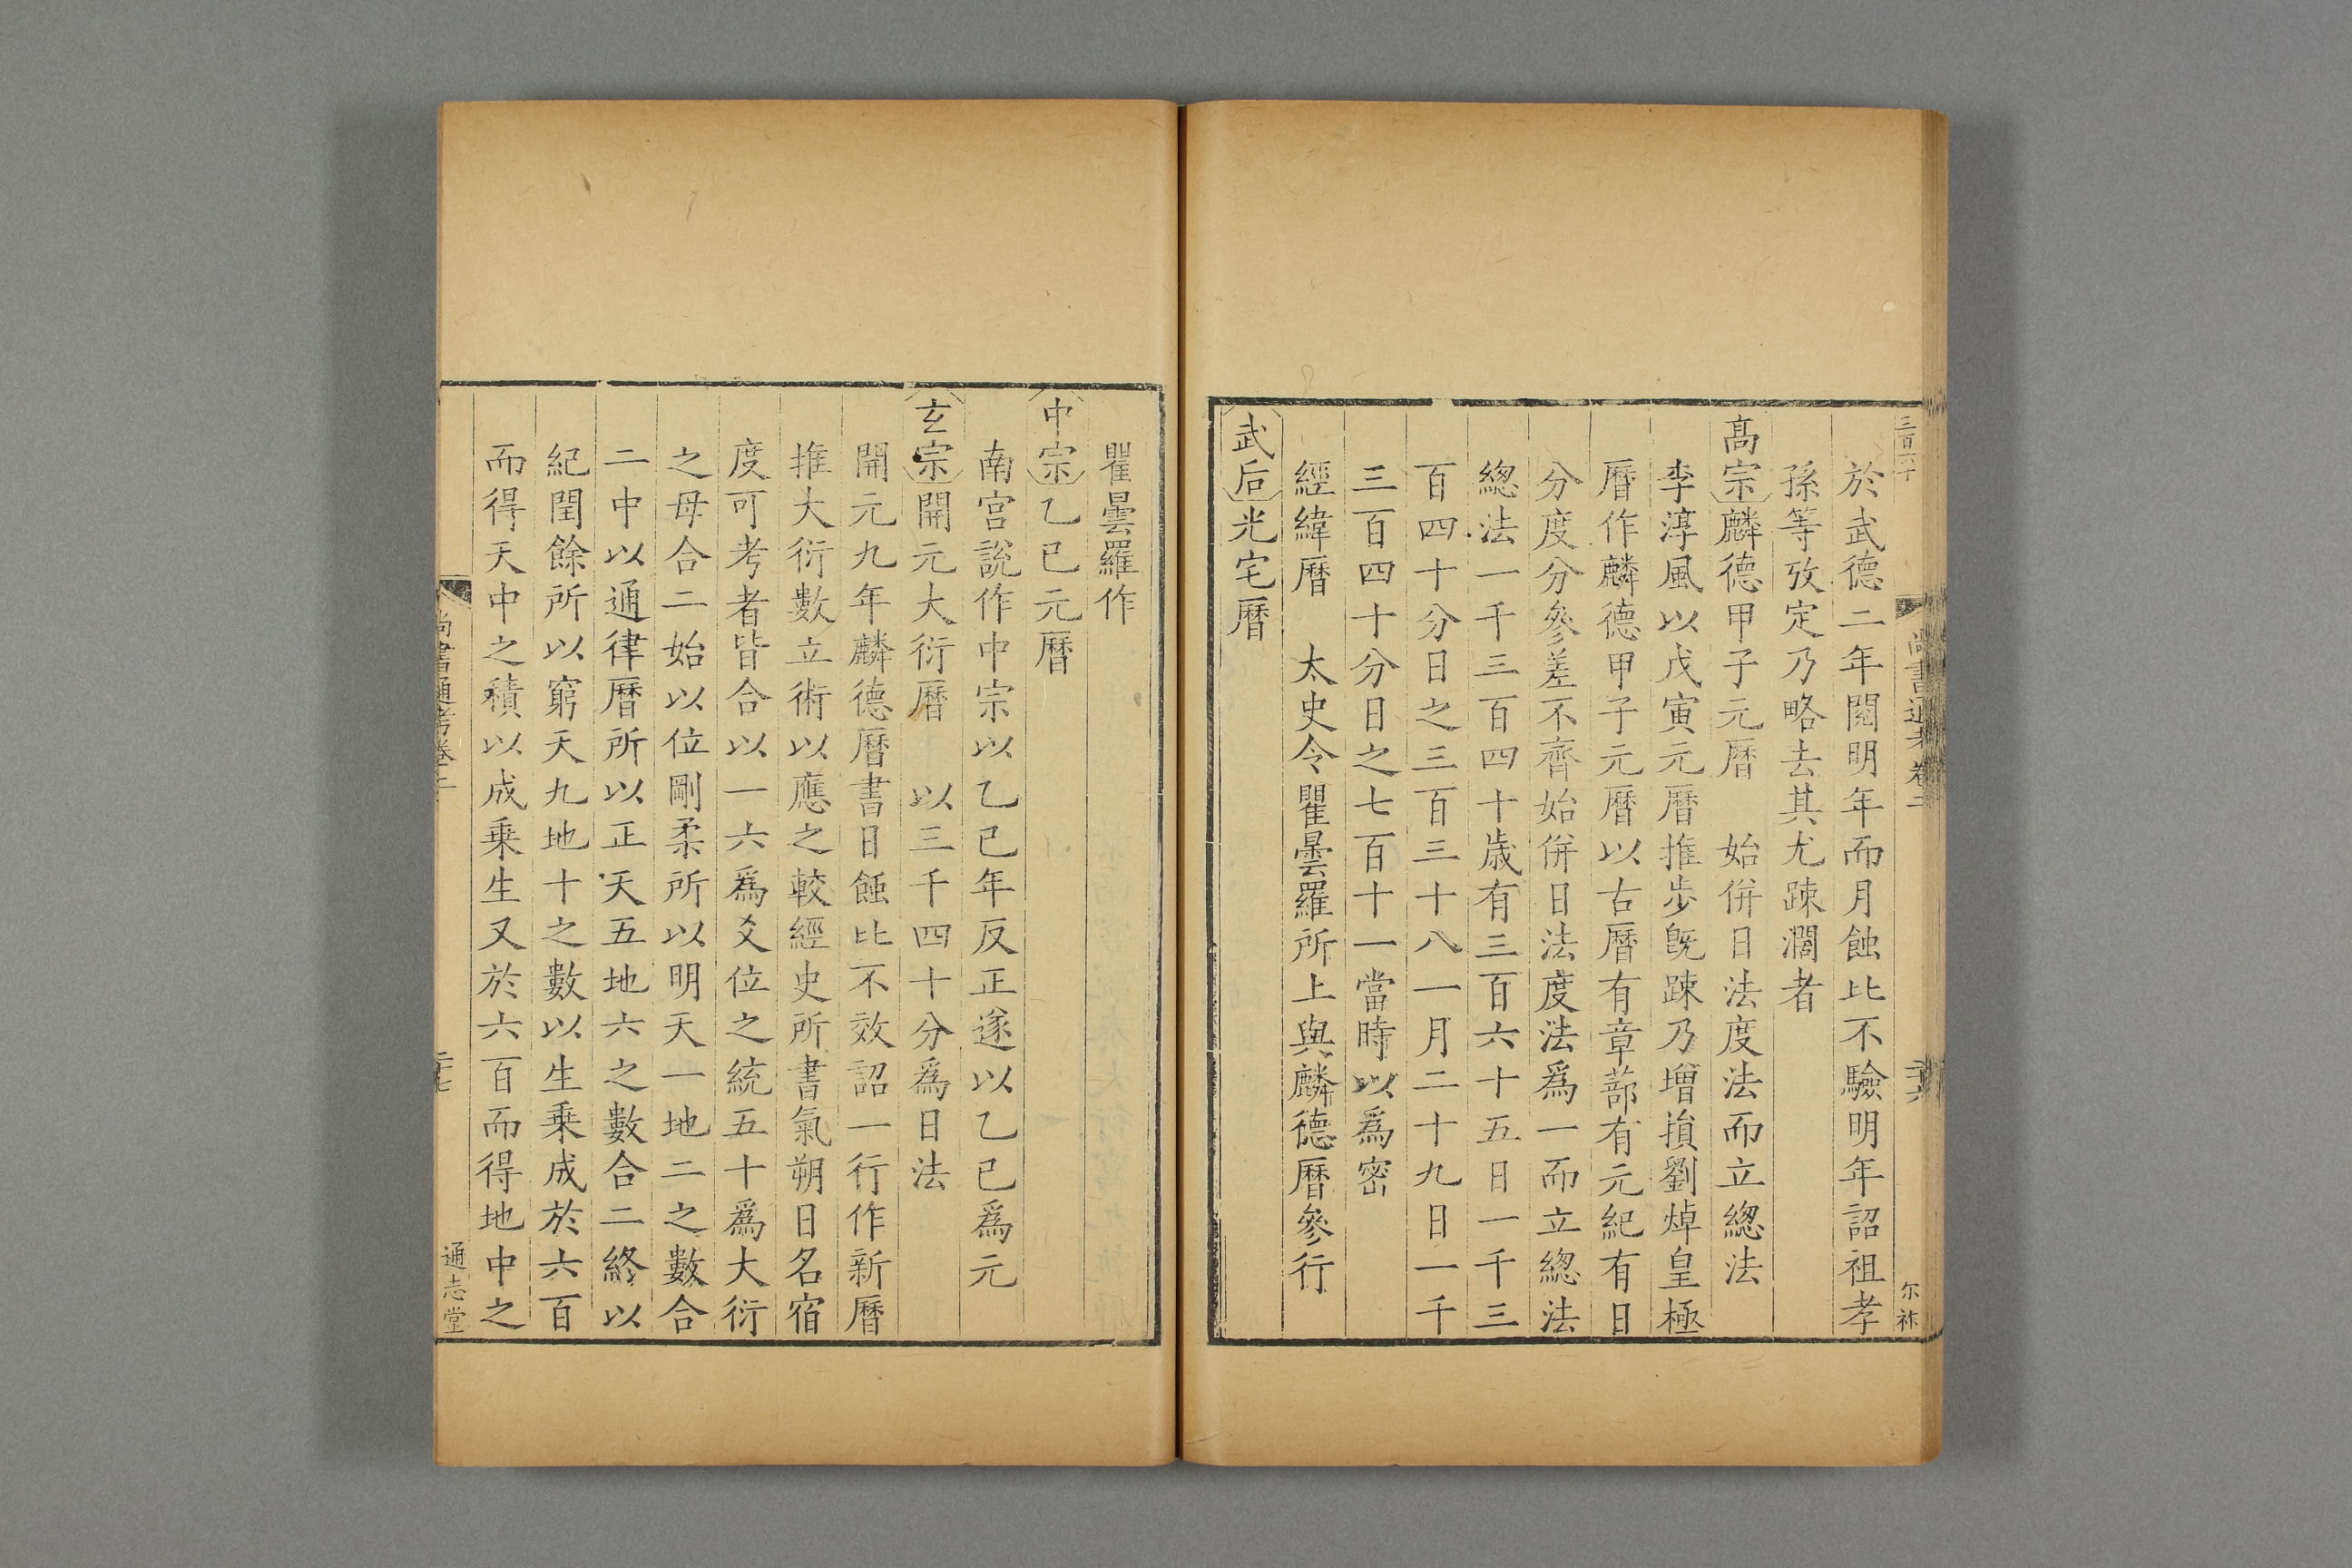 三百六十
尚書通考卷二
二十六
尔祚
於武德二年閱明年而月蝕比不驗明年詔祖孝
孫等攷定乃略去其尤踈濶者
髙宗麟德甲子元曆　始併日法度法而立緫法
李淳風以戊寅元曆推步旣踈乃增損劉焯皇極
曆作麟德甲子元曆以古曆有章蔀有元紀有日
分度分參差不齊始併日法度法爲一而立緫法
緫法一千三百四十歲有三百六十五日一千三
百四十分日之三百三十八一月二十九日一千
三百四十分日之七百十一當時以爲密
經緯曆　太史令瞿曇羅所上與麟德曆參行
武后光宅曆
瞿曇羅作
中宗乙巳元曆
南宫説作中宗以乙巳年反正遂以乙巳爲元
玄宗開元大衍曆　以三千四十分爲日法
開元九年麟德曆書日蝕比不效詔一行作新曆
推大衍數立術以應之較經史所書氣朔日名宿
度可考者皆合以一六爲爻位之統五十爲大衍
之母合二始以位剛柔所以明天一地二之數合
二中以通律曆所以正天五地六之數合二終以
紀閏餘所以窮天九地十之數以生乗成於六百
而得天中之積以成乗生又於六百而得地中之
尚書通考卷二
二十七
通志堂